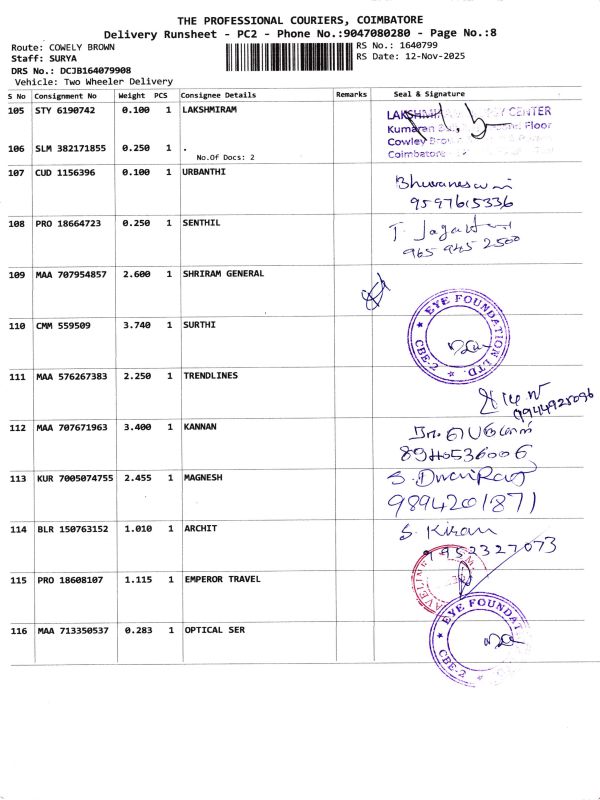 THE PROFESSIONAL COURIERS, COIMBATORE
Delivery Runsheet - PC2 - Phone No.:9047080280 - Page No.:8
Route: COWELY BROWN
RS No.: 1640799
Staff: SURYA
RS Date: 12-Nov-2025
DRS No.: DCJB164079908
Vehicle: Two Wheeler Delivery
S No Consignment No Weight PCS Consignee Details Remarks Seal & Signature
105 STY 6190742 0.100 1 LAKSHMIRAM
CENTER
Kumaran Floor
106 SLM 382171855 0.250 1 .
Cowley
No.Of Docs: 2
Coimbatore
107 CUD 1156396 0.100 1 URBANTHI
Bhuvaneswari
9597615336
108 PRO 18664723 0.250 1 SENTHIL
T.
965 945 2500
109 MAA 707954857 2.600 1 SHRIRAM GENERAL
EYE FOUNDATION LTD
CBE-2
110 CMM 559509 3.740 1 SURTHI
111 MAA 576267383 2.250 1 TRENDLINES
9944925096
112 MAA 707671963 3.400 1 KANNAN
113 KUR 7005074755 2.455 1 MAGNESH
S.
9894201871
114 BLR 150763152 1.010 1 ARCHIT
S. Kiran
9952327073
115 PRO 18608107 1.115 1 EMPEROR TRAVEL
116 MAA 713350537 0.283 1 OPTICAL SER
EYE FOUNDAT
CBE-2